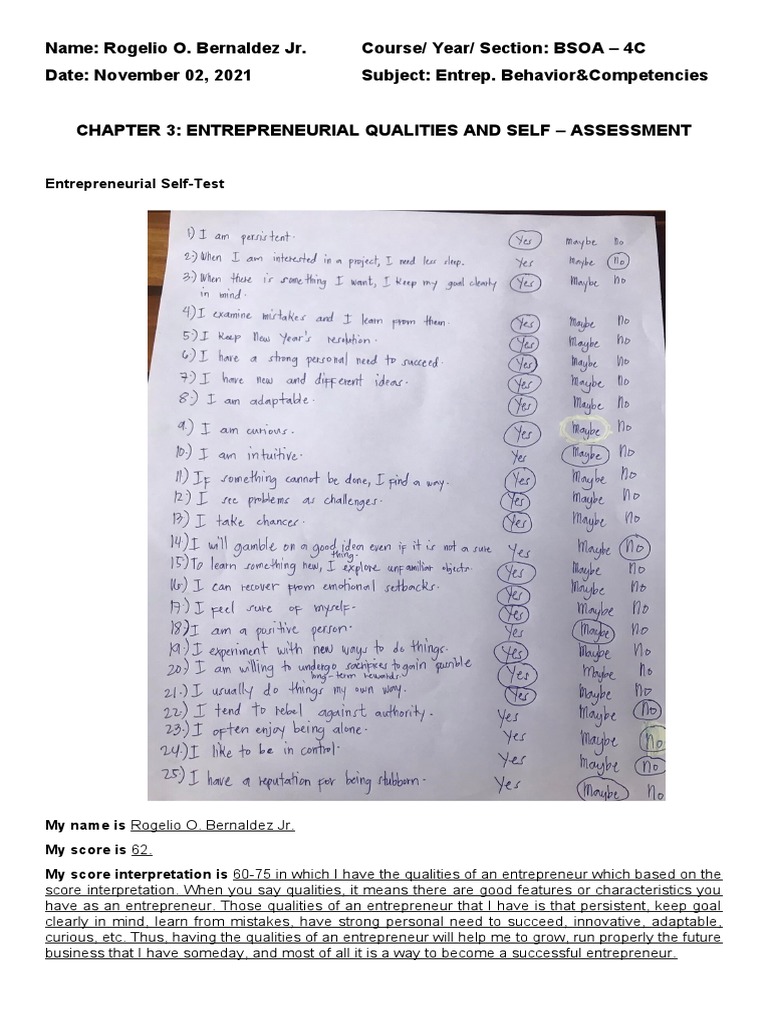 Name: Rogelio O. Bernaldez Jr. Course/ Year/ Section: BSOA – 4C
Date: November 02, 2021 Subject: Entrep. Behavior&Competencies
CHAPTER 3: ENTREPRENEURIAL QUALITIES AND SELF – ASSESSMENT
Entrepreneurial Self-Test
1) I am persistent. Yes Maybe No
2.) When I am interested in a project, I need less sleep. Yes Maybe No
3.) When there is something I want, I keep my goal clearly Yes Maybe No
in mind.
4.) I examine mistakes and I learn from them. Yes Maybe No
5.) I keep New Year's resolution. Yes Maybe No
6.) I have a strong personal need to succeed. Yes Maybe No
7.) I have new and different ideas. Yes Maybe No
8.) I am adaptable. Yes Maybe No
9.) I am curious. Yes Maybe No
10.) I am intuitive. Yes Maybe No
11.) If something cannot be done, I find a way. Yes Maybe No
12.) I see problems as challenges. Yes Maybe No
13.) I take chances. Yes Maybe No
14.) I will gamble on a good idea even if it is not a sure Yes Maybe No
thing.
15.) To learn something new, I explore unfamiliar objects. Yes Maybe No
16.) I can recover from emotional setbacks. Yes Maybe No
17.) I feel sure of myself. Yes Maybe No
18.) I am a positive person. Yes Maybe No
19.) I experiment with new ways to do things. Yes Maybe No
20.) I am willing to undergo sacrifices to gain possible Yes Maybe No
long-term rewards.
21.) I usually do things my own way. Yes Maybe No
22.) I tend to rebel against authority. Yes Maybe No
23.) I often enjoy being alone. Yes Maybe No
24.) I like to be in control. Yes Maybe No
25.) I have a reputation for being stubborn. Yes Maybe No
My name is Rogelio O. Bernaldez Jr.
My score is 62.
My score interpretation is 60-75 in which I have the qualities of an entrepreneur which based on the
score interpretation. When you say qualities, it means there are good features or characteristics you
have as an entrepreneur. Those qualities of an entrepreneur that I have is that persistent, keep goal
clearly in mind, learn from mistakes, have strong personal need to succeed, innovative, adaptable,
curious, etc. Thus, having the qualities of an entrepreneur will help me to grow, run properly the future
business that I have someday, and most of all it is a way to become a successful entrepreneur.